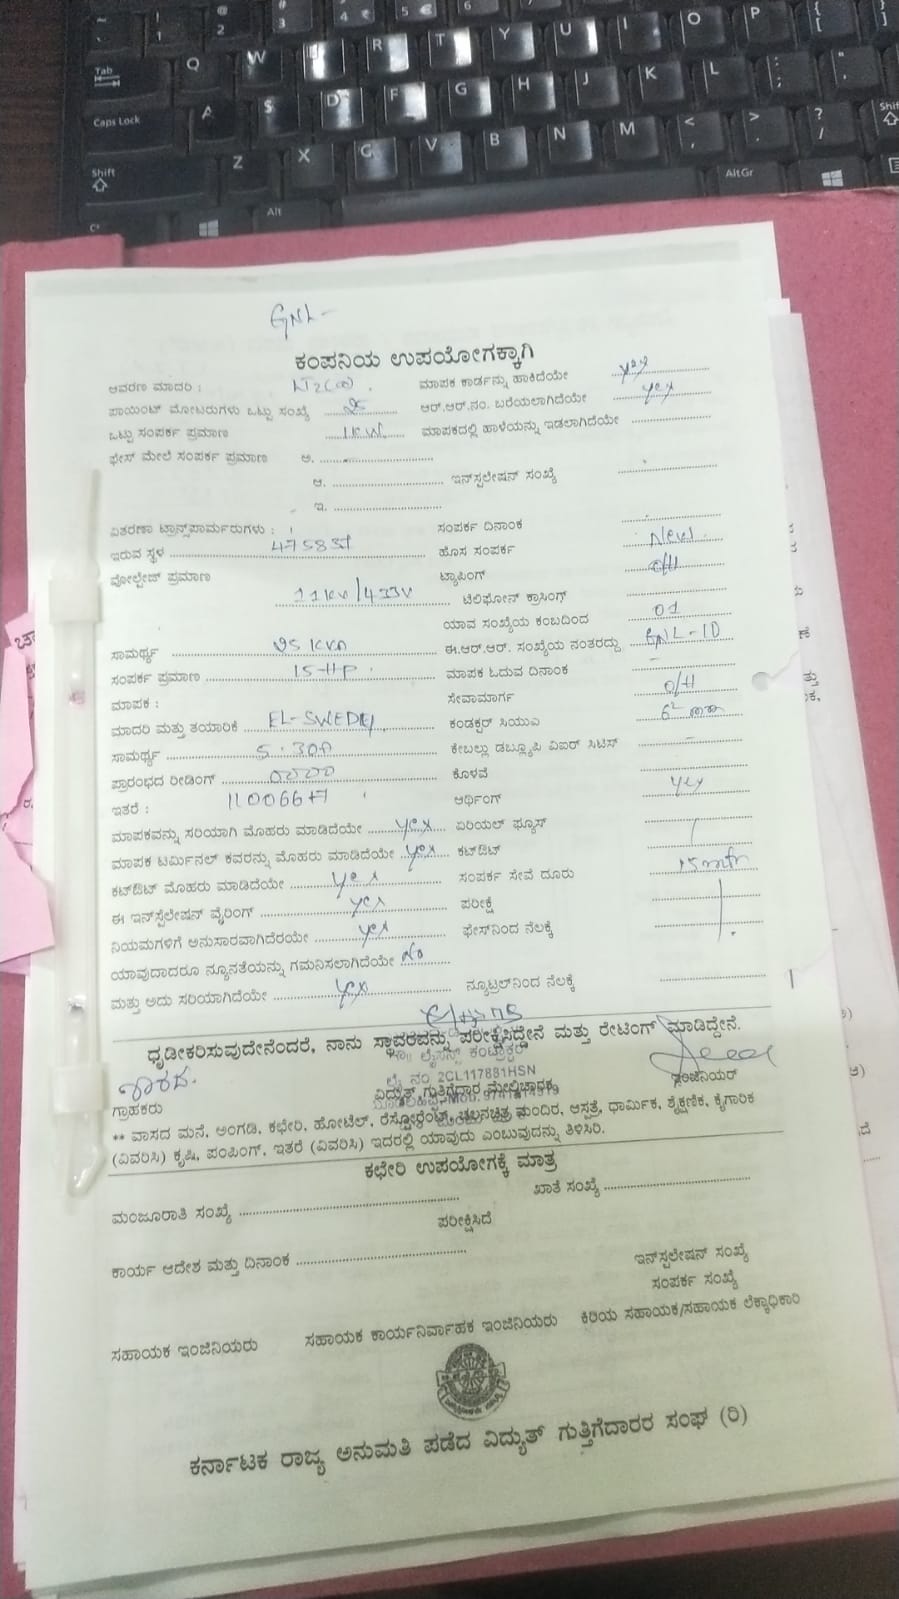 GNL-
ಕಂಪನಿಯ ಉಪಯೋಗಕ್ಕಾಗಿ
ಆವರಣ ಮಾದರಿ : ಮಾಪಕ ಕಾರ್ಡನ್ನು ಹಾಕಿದೆಯೇ yes
ಪಾಯಿಂಟ್ ಮೋಟರುಗಳು ಒಟ್ಟು ಸಂಖ್ಯೆ ಆರ್.ಆರ್.ನಂ. ಬರೆಯಲಾಗಿದೆಯೇ yes
ಒಟ್ಟು ಸಂಪರ್ಕ ಪ್ರಮಾಣ 1KW ಮಾಪಕದಲ್ಲಿ ಹಾಳೆಯನ್ನು ಇಡಲಾಗಿದೆಯೇ
ಫೇಸ್ ಮೇಲೆ ಸಂಪರ್ಕ ಪ್ರಮಾಣ ಅ.
ಆ. ಇನ್‌ಸ್ಟಲೇಷನ್ ಸಂಖ್ಯೆ
ಇ.
ವಿತರಣಾ ಟ್ರಾನ್ಸ್‌ಪಾರ್ಮರುಗಳು : ಸಂಪರ್ಕ ದಿನಾಂಕ
ಇರುವ ಸ್ಥಳ ಹೊಸ ಸಂಪರ್ಕ New
ವೋಲ್ಟೇಜ್ ಪ್ರಮಾಣ ಟ್ಯಾಪಿಂಗ್ O/H
11KV/433V ಟೆಲಿಫೋನ್ ಕ್ರಾಸಿಂಗ್
ಯಾವ ಸಂಖ್ಯೆಯ ಕಂಬದಿಂದ 01
ಸಾಮರ್ಥ್ಯ 25 KVA ಈ.ಆರ್.ಆರ್. ಸಂಖ್ಯೆಯ ನಂತರದ್ದು GNL-10
ಸಂಪರ್ಕ ಪ್ರಮಾಣ 15-HP ಮಾಪಕ ಓದುವ ದಿನಾಂಕ
ಮಾಪಕ : ಸೇವಾಮಾರ್ಗ O/H
ಮಾದರಿ ಮತ್ತು ತಯಾರಿಕೆ EL-SWEDY ಕಂಡಕ್ಟರ್ ಸಿಯುವಿ
ಸಾಮರ್ಥ್ಯ 5-30A ಕೇಬಲ್ಲು ಡಬ್ಲ್ಯೂಪಿ ವಿಐರ್ ಸಿಟಿಸ್
ಪ್ರಾರಂಭದ ರೀಡಿಂಗ್ ಕೊಳವೆ
ಇತರೆ : ಆರ್ಥಿಂಗ್ yes
ಮಾಪಕವನ್ನು ಸರಿಯಾಗಿ ಮೊಹರು ಮಾಡಿದೆಯೇ yes ಏರಿಯಲ್ ಫ್ಯೂಸ್
ಮಾಪಕ ಟರ್ಮಿನಲ್ ಕವರನ್ನು ಮೊಹರು ಮಾಡಿದೆಯೇ yes ಕಟ್‌ಔಟ್
ಕಟ್‌ಔಟ್ ಮೊಹರು ಮಾಡಿದೆಯೇ yes ಸಂಪರ್ಕ ಸೇವೆ ದೂರು 15mtr
ಈ ಇನ್‌ಸ್ಟೆಲೇಷನ್ ವೈರಿಂಗ್ yes ಪರೀಕ್ಷೆ
ನಿಯಮಗಳಿಗೆ ಅನುಸಾರವಾಗಿದೆರಯೇ yes ಫೇಸ್‌ನಿಂದ ನೆಲಕ್ಕೆ
ಯಾವುದಾದರೂ ನ್ಯೂನತೆಯನ್ನು ಗಮನಿಸಲಾಗಿದೆಯೇ No
ಮತ್ತು ಅದು ಸರಿಯಾಗಿದೆಯೇ yes ನ್ಯೂಟ್ರಲ್‌ನಿಂದ ನೆಲಕ್ಕೆ
ಧೃಡೀಕರಿಸುವುದೇನೆಂದರೆ, ನಾನು ಸ್ಥಾವರವನ್ನು ಪರೀಕ್ಷಿಸಿದ್ದೇನೆ ಮತ್ತು ರೇಟಿಂಗ್ ಮಾಡಿದ್ದೇನೆ.
ಲೈಸನ್ಸ್ ಕಂಟ್ರಾಕ್ಟರ್
ಲೈ ನಂ 2CL117881HSN
ಗ್ರಾಹಕರು ವಿದ್ಯುತ್ ಗುತ್ತಿಗೆದಾರ ಮೇಲ್ವಿಚಾರಕ ಇಂಜಿನಿಯರ್
** ವಾಸದ ಮನೆ, ಅಂಗಡಿ, ಕಛೇರಿ, ಹೋಟೆಲ್, ರೆಸ್ಟೋರೆಂಟ್, ಚಲನಚಿತ್ರ ಮಂದಿರ, ಆಸ್ಪತ್ರೆ, ಧಾರ್ಮಿಕ, ಶೈಕ್ಷಣಿಕ, ಕೈಗಾರಿಕ
(ವಿವರಿಸಿ) ಕೃಷಿ, ಪಂಪಿಂಗ್, ಇತರೆ (ವಿವರಿಸಿ) ಇದರಲ್ಲಿ ಯಾವುದು ಎಂಬುವುದನ್ನು ತಿಳಿಸಿರಿ.
ಕಛೇರಿ ಉಪಯೋಗಕ್ಕೆ ಮಾತ್ರ
ಮಂಜೂರಾತಿ ಸಂಖ್ಯೆ ಖಾತೆ ಸಂಖ್ಯೆ
ಪರೀಕ್ಷಿಸಿದೆ
ಕಾರ್ಯ ಆದೇಶ ಮತ್ತು ದಿನಾಂಕ ಇನ್‌ಸ್ಟಲೇಷನ್ ಸಂಖ್ಯೆ
ಸಂಪರ್ಕ ಸಂಖ್ಯೆ
ಸಹಾಯಕ ಇಂಜಿನಿಯರು ಸಹಾಯಕ ಕಾರ್ಯನಿರ್ವಾಹಕ ಇಂಜಿನಿಯರು ಕಿರಿಯ ಸಹಾಯಕ/ಸಹಾಯಕ ಲೆಕ್ಕಾಧಿಕಾರಿ
ಕರ್ನಾಟಕ ರಾಜ್ಯ ಅನುಮತಿ ಪಡೆದ ವಿದ್ಯುತ್ ಗುತ್ತಿಗೆದಾರರ ಸಂಘ (ರಿ)